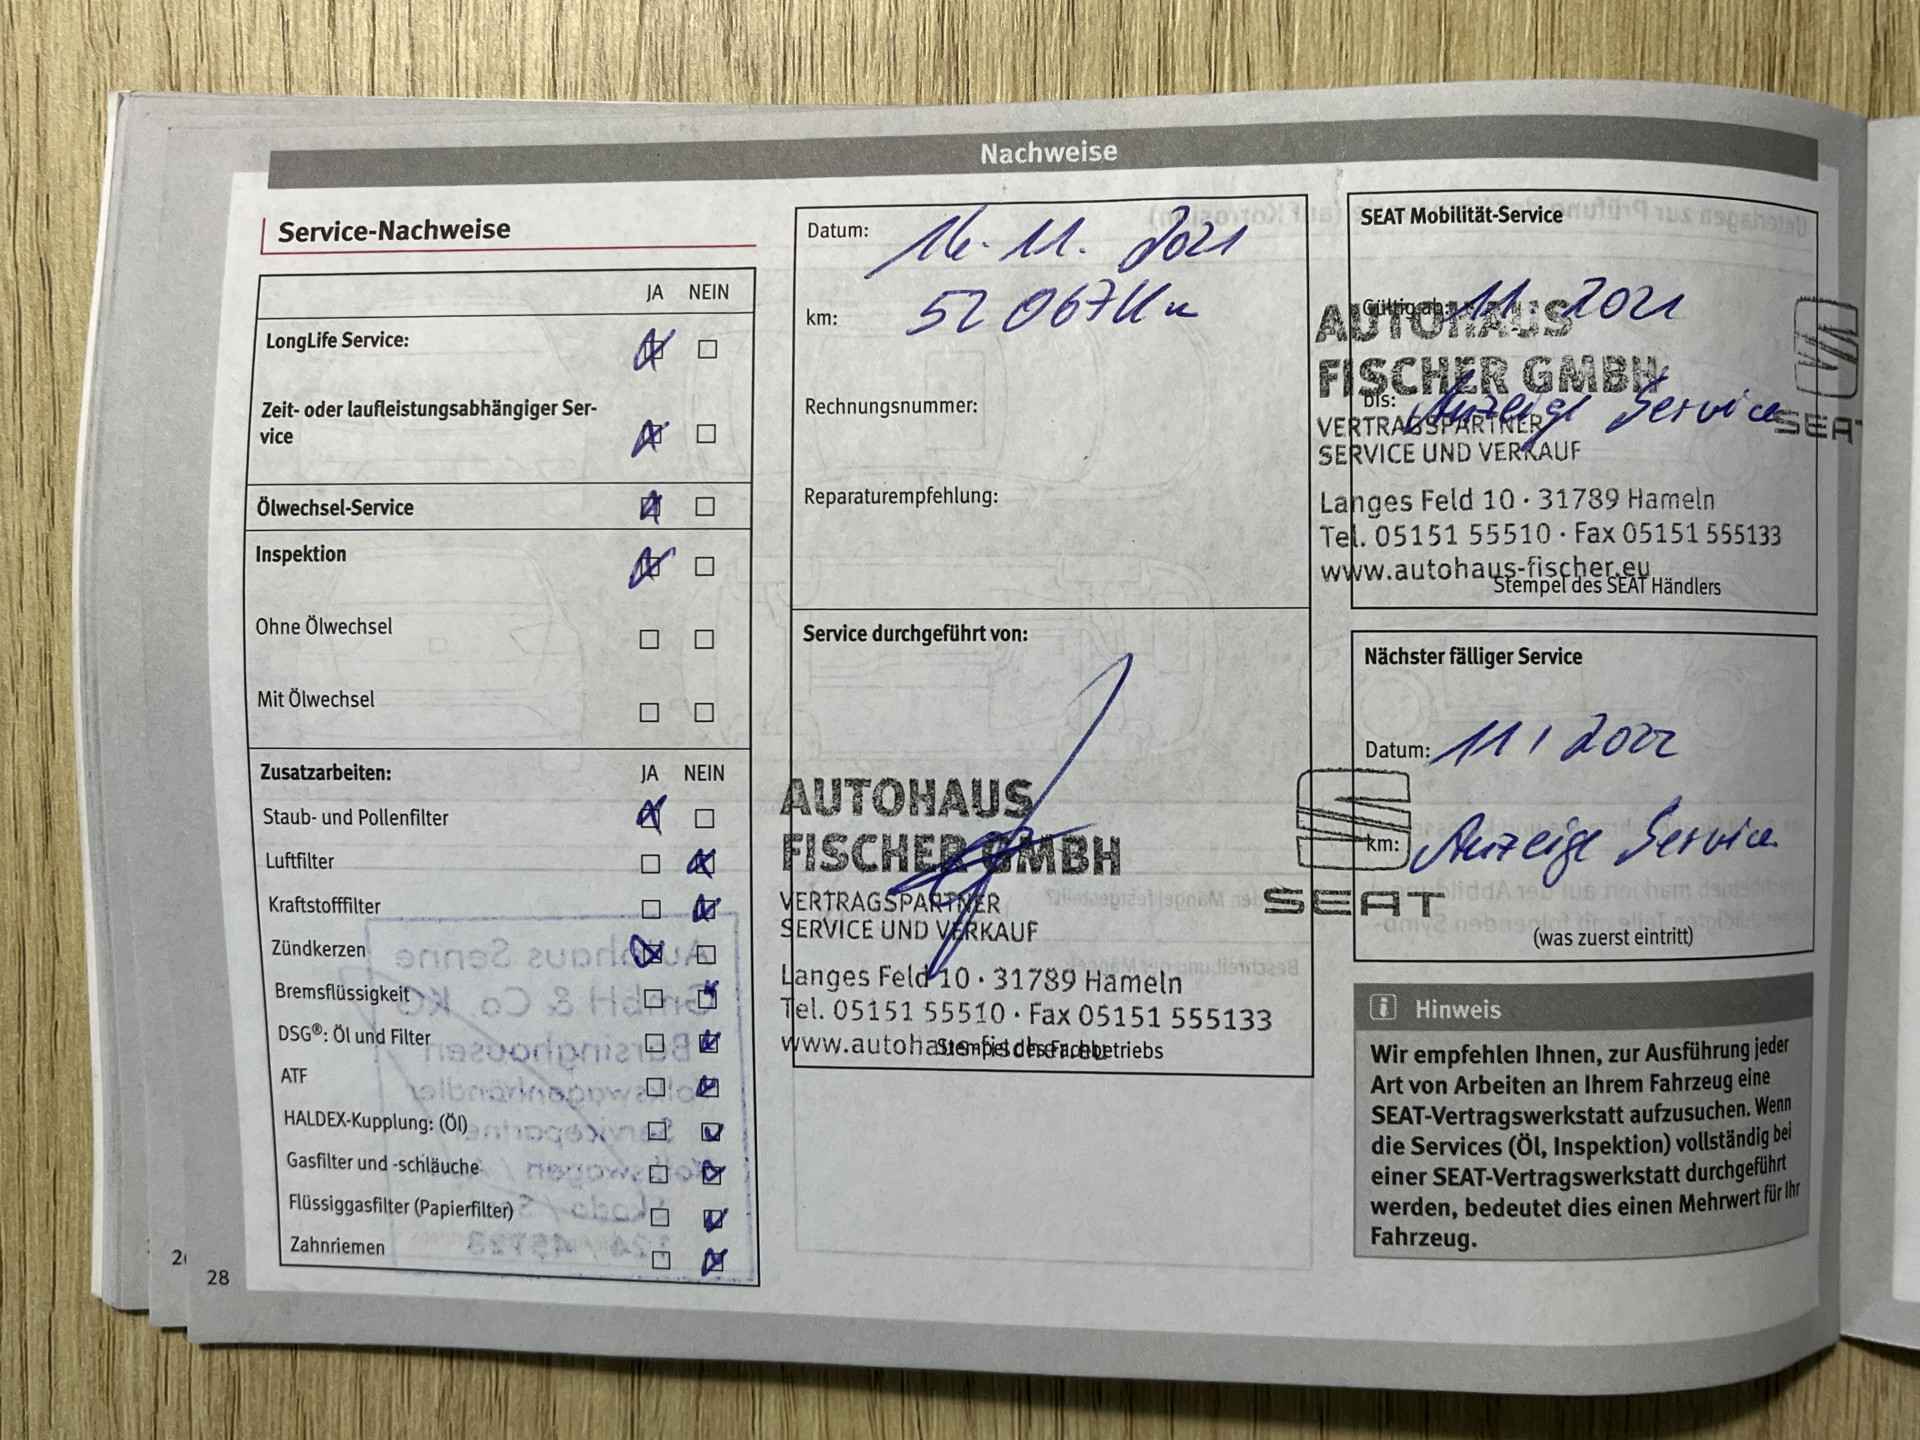 Nachweise
Service-Nachweise
JA NEIN
LongLife Service:
Zeit- oder laufleistungsabhängiger Ser-
vice
Ölwechsel-Service
Inspektion
Ohne Ölwechsel
Mit Ölwechsel
Zusatzarbeiten: JA NEIN
Staub- und Pollenfilter
Luftfilter
Kraftstofffilter
Zündkerzen
Bremsflüssigkeit
DSG®: Öl und Filter
ATF
HALDEX-Kupplung: (Öl)
Gasfilter und -schläuche
Flüssiggasfilter (Papierfilter)
Zahnriemen
28
Datum: 16. 11. 2021
km: 52 067 Km
Rechnungsnummer:
Reparaturempfehlung:
Service durchgeführt von:
AUTOHAUS
FISCHER GMBH
VERTRAGSPARTNER
SERVICE UND VERKAUF
Langes Feld 10 · 31789 Hameln
Tel. 05151 55510 · Fax 05151 555133
www.autohaus-fischer.eu
Stempel des Fachbetriebs
SEAT
SEAT Mobilität-Service
Gültig ab: 11. 2021
bis: Anzeige Service
AUTOHAUS
FISCHER GMBH
VERTRAGSPARTNER
SERVICE UND VERKAUF
Langes Feld 10 · 31789 Hameln
Tel. 05151 55510 · Fax 05151 555133
www.autohaus-fischer.eu
SEAT
Stempel des SEAT Händlers
Nächster fälliger Service
Datum: 11 / 2022
km: Anzeige Service
(was zuerst eintritt)
i Hinweis
Wir empfehlen Ihnen, zur Ausführung jeder
Art von Arbeiten an Ihrem Fahrzeug eine
SEAT-Vertragswerkstatt aufzusuchen. Wenn
die Services (Öl, Inspektion) vollständig bei
einer SEAT-Vertragswerkstatt durchgeführt
werden, bedeutet dies einen Mehrwert für Ihr
Fahrzeug.